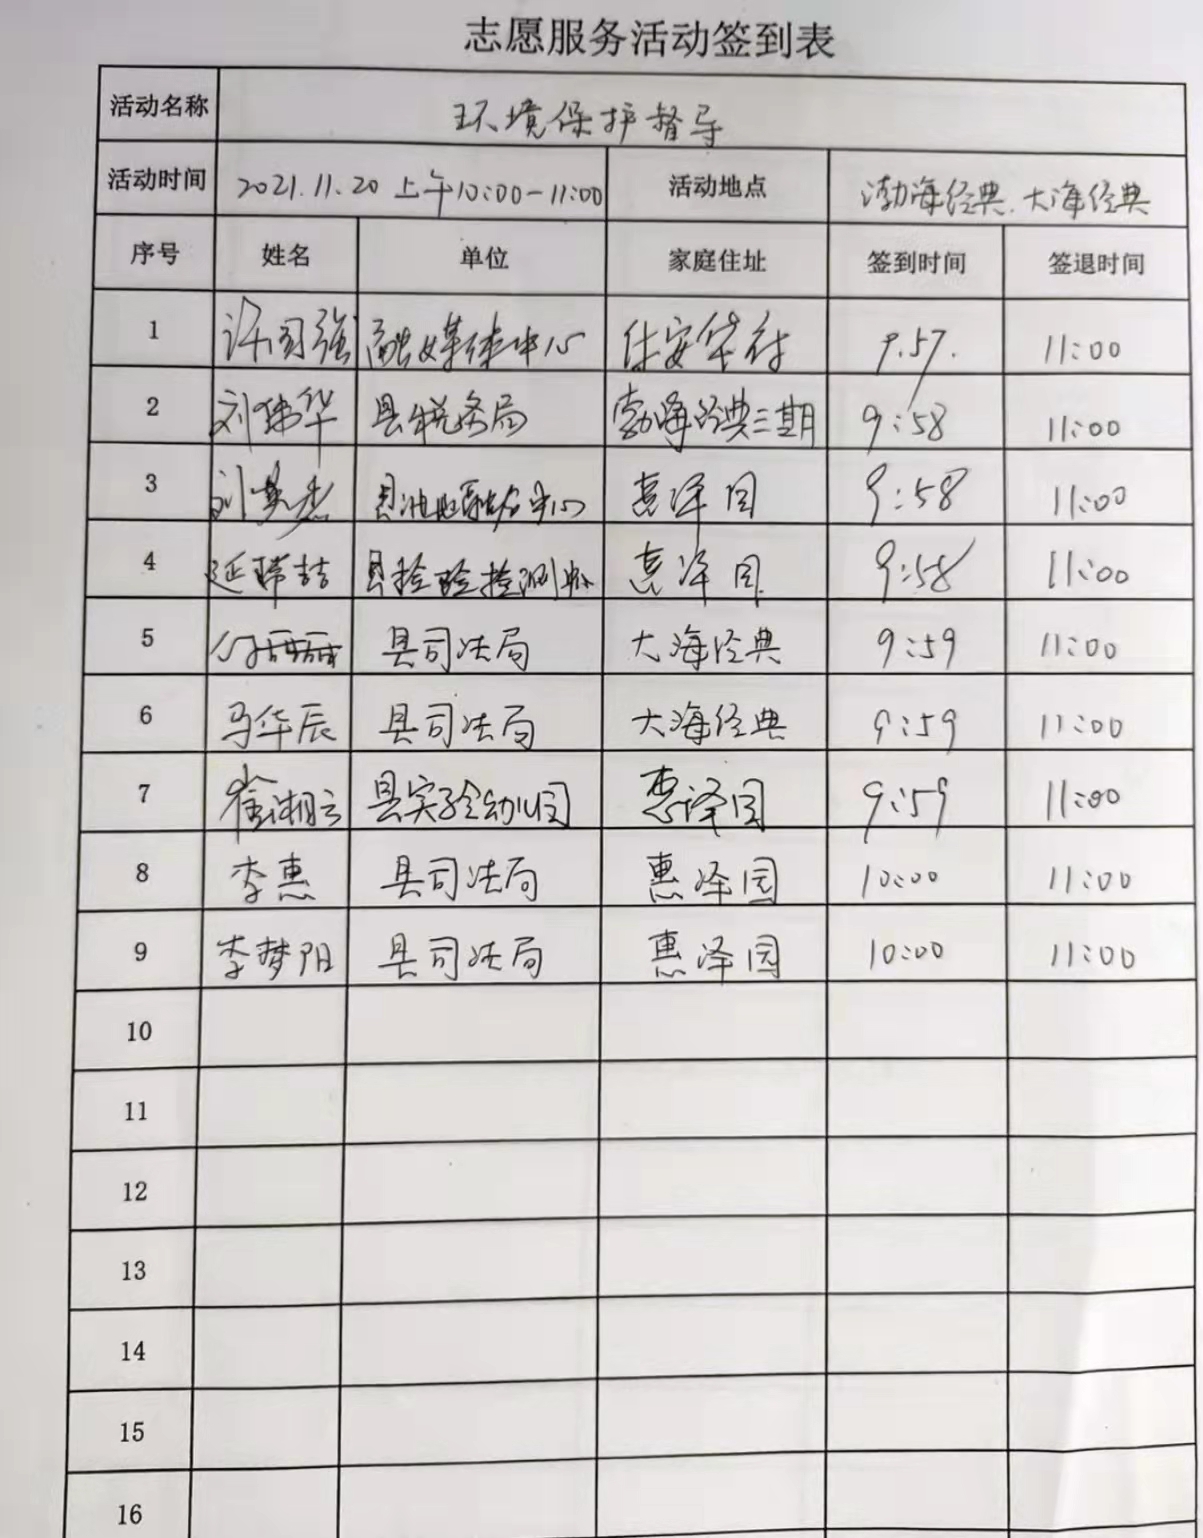 志愿服务活动签到表
活动名称 环境保护督导
活动时间 2021.11.20 上午10:00-11:00 活动地点 渤海经典.大海经典
序号 姓名 单位 家庭住址 签到时间 签退时间
1 许国强 融媒体中心 9.57. 11:00
2 刘伟华 县税务局 渤海经典三期 9:58 11:00
3 刘 惠泽园 9:58 11:00
4 延 县检验检测中心 惠泽园 9:58 11:00
5 县司法局 大海经典 9:59 11:00
6 马华辰 县司法局 大海经典 9:59 11:00
7 崔湘云 县实验幼儿园 惠泽园 9:59 11:00
8 李惠 县司法局 惠泽园 10:00 11:00
9 李梦阳 县司法局 惠泽园 10:00 11:00
10
11
12
13
14
15
16